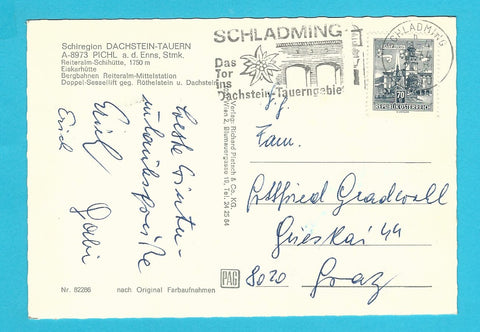 Schiregion DACHSTEIN-TAUERN
A-8973 PICHL a. d. Enns, Stmk.
Reiteralm-Schihütte, 1750 m
Eiskarhütte
Bergbahnen Reiteralm-Mittelstation
Doppel-Sessellift geg. Rötheistein u. Dachstein
SCHLADMING
Das
Tor
ins
Dachstein-Tauerngebiet
SCHLADMING
70
REPUBLIK ÖSTERREICH
beste Winter-
urlaubsgrüße
Erich Gabi
Erich
Verlag: Richard Pietsch & Co. KG.
Wien 2, Blumauergasse 18, Tel. 24 25 84
Fam.
Gottfried Gradwohl
Grieskai 44
8020 Graz
PAG
Nr. 82286 nach Original Farbaufnahmen